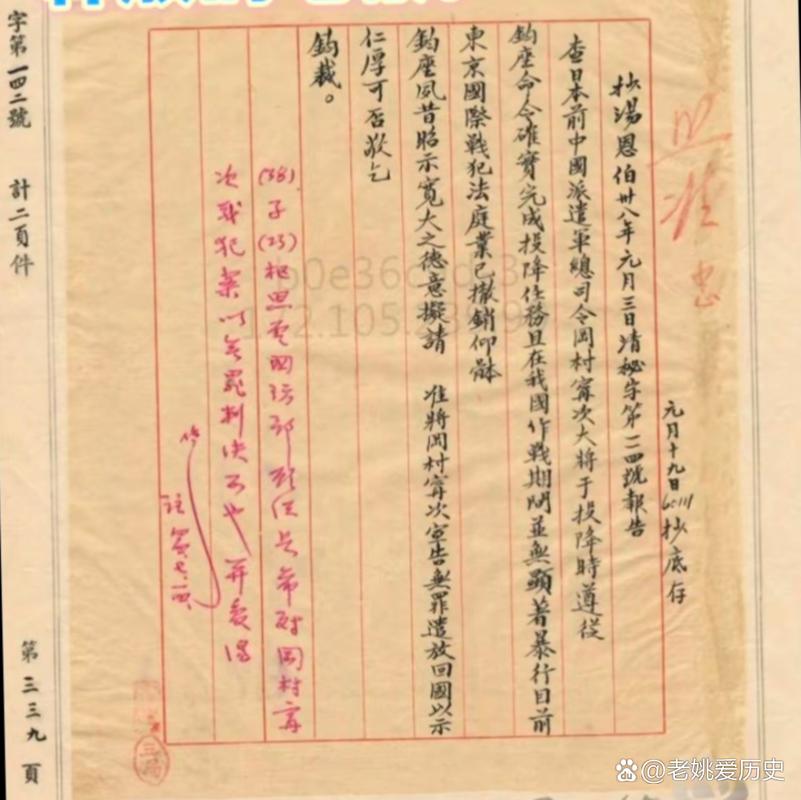 照准 忠
元月十九日6011抄底存
抄湯恩伯卅八年元月三日清秘字第二四號報告
查日本前中國派遣軍總司令岡村寧次大將于投降時遵從
鈞座命令確實完成投降任務且在我國作戰期間並無顯著暴行目前
東京國際戰犯法庭業已撤銷仰體
鈞座夙昔昭示寬大之德意擬請 准將岡村寧次宣告無罪遣放回國以示
仁厚可否敬乞
鈞裁。
(38)子(23)
岡村寧
次戰犯案以無罪判決
字第一四二號 計二頁件
第三三九頁
三局
@老姚爱历史